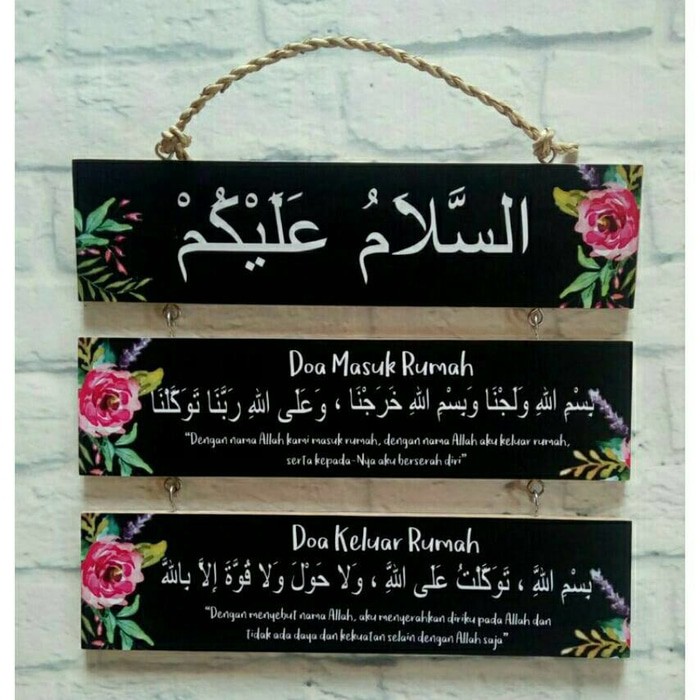 السَّلَامُ عَلَيْكُمْ
Doa Masuk Rumah
بِسْمِ اللهِ وَلَجْنَا وَبِسْمِ اللهِ خَرَجْنَا ، وَعَلَى اللهِ رَبَّنَا تَوَكَّلْنَا
"Dengan nama Allah kami masuk rumah, dengan nama Allah aku keluar rumah,
serta kepada-Nya aku berserah diri"
Doa Keluar Rumah
بِسْمِ اللَّهِ ، تَوَكَّلْتُ عَلَى اللَّهِ ، وَلَا حَوْلَ وَلَا قُوَّةَ إِلاَّ بِاللَّهِ
"Dengan menyebut nama Allah, aku menyerahkan diriku pada Allah dan
tidak ada daya dan kekuatan selain dengan Allah saja"